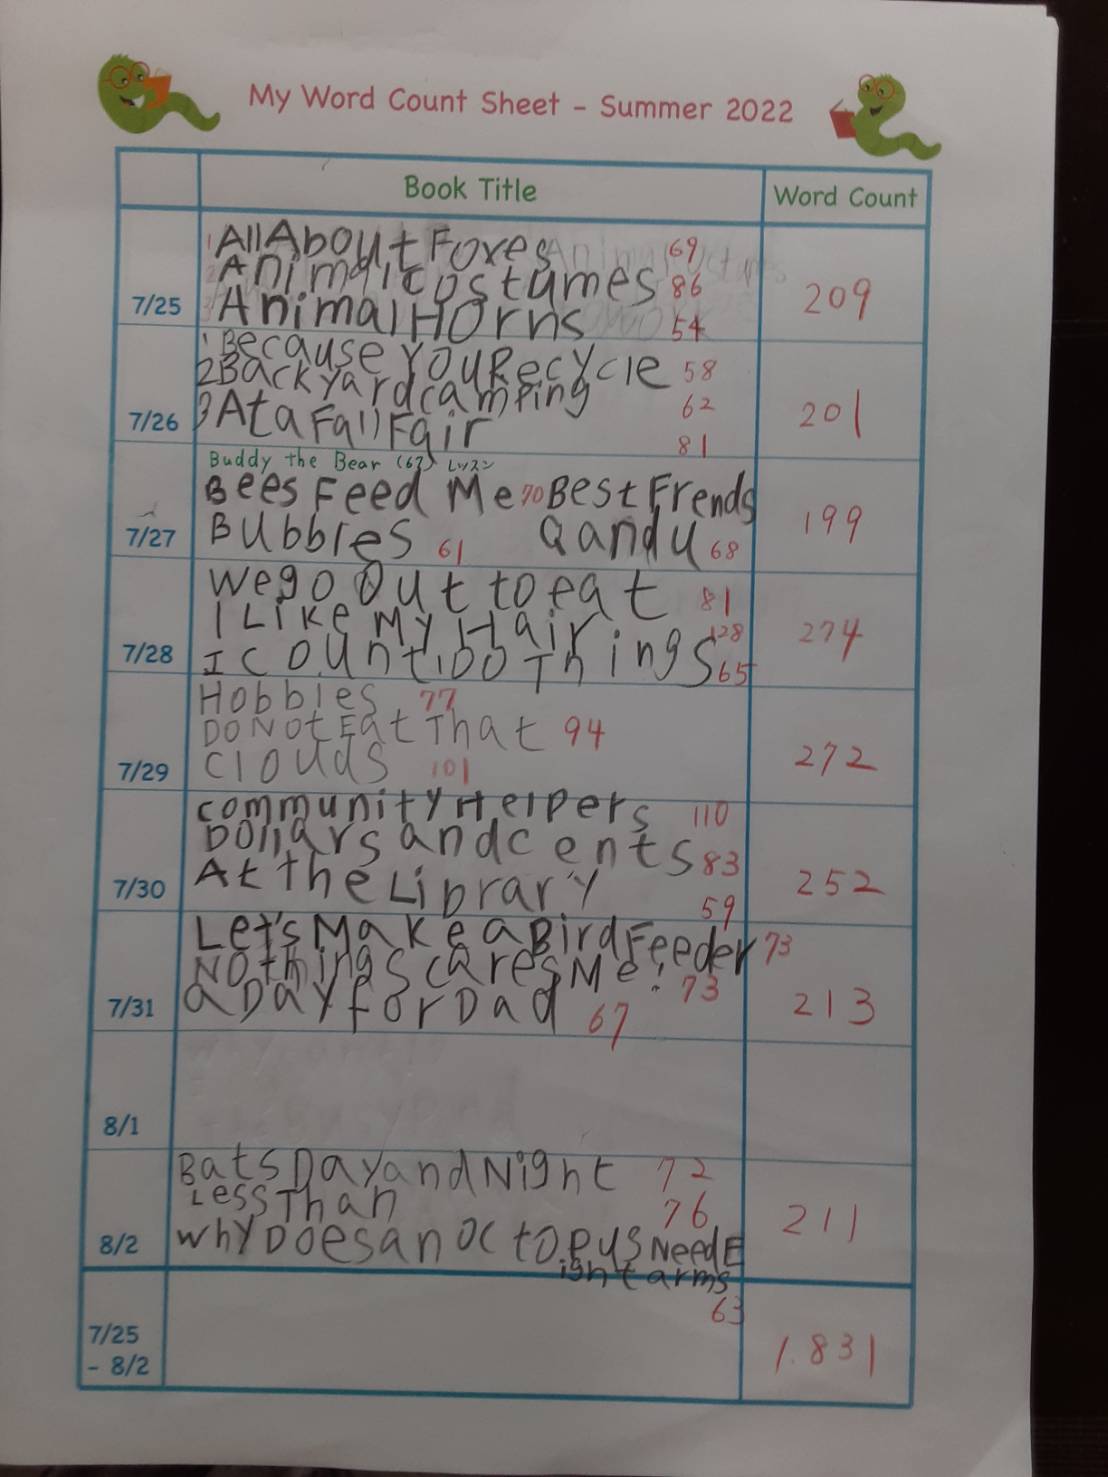 My Word Count Sheet - Summer 2022
Book Title Word Count
1 All About Foxes 69
Animal costumes 86
7/25 Animal Horns 54 209
1 Because You Recycle 58
2 Back yard camping 62
7/26 3 At a Fall Fair 81 201
Buddy the Bear (67) レッスン
Bees Feed Me 70 Best Frends
7/27 Bubbles 61 Q and U 68 199
We go Out to eat 81
I Like My Hair 128
7/28 I count 100 Things 65 274
Hobbies 77
Do Not Eat That 94
7/29 clouds 101 272
community Helpers 110
Dollars and cents 83
7/30 At the Library 59 252
Let's Make a Bird Feeder 73
Nothing Scares Me! 73
7/31 a Day for Dad 67 213
8/1
Bats Day and Night 72
Less Than 76
8/2 Why Does an Octopus Need E 211
ight arms
63
7/25
- 8/2 1.831